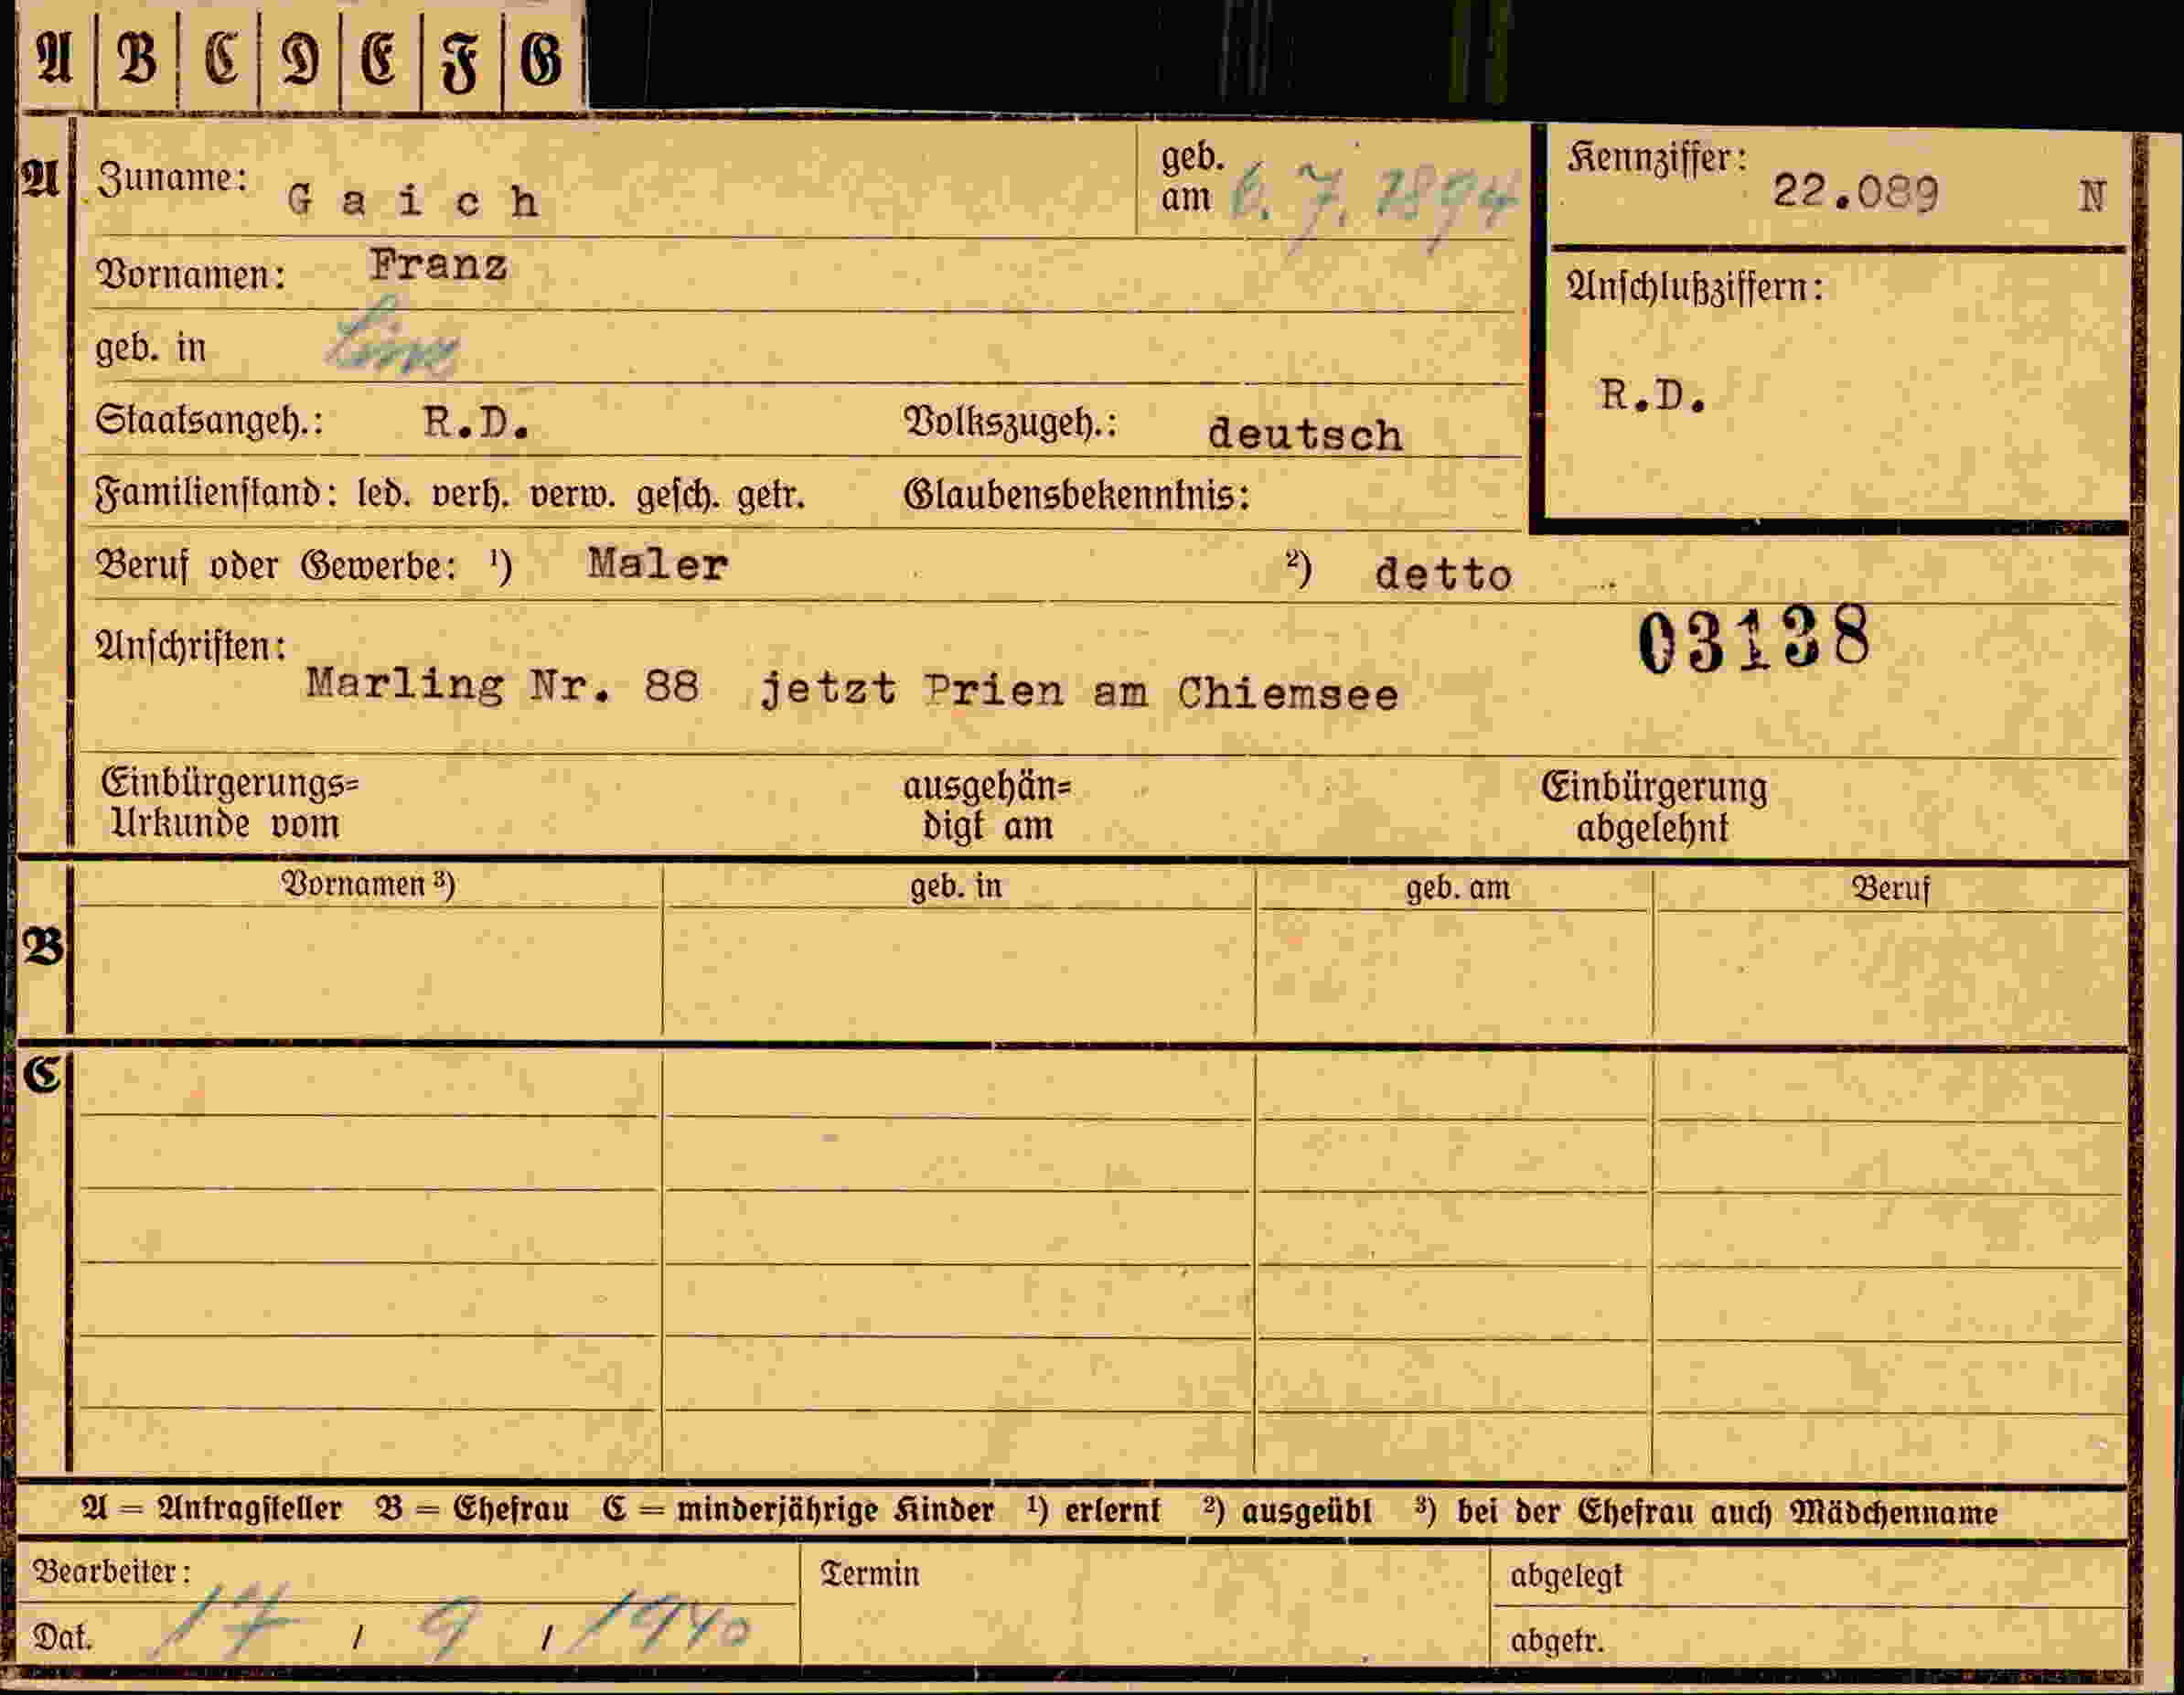 A B C D E F G
A Zuname: Gaich geb. am 6. 7. 1894 Kennziffer: 22.089 N
Vornamen: Franz
Anschlußziffern:
geb. in Linz
R.D.
Staatsangeh.: R.D. Volkszugeh.: deutsch
Familienstand: led. verh. verw. gesch. getr. Glaubensbekenntnis:
Beruf oder Gewerbe: 1) Maler 2) detto
03138
Anschriften:
Marling Nr. 88 jetzt Prien am Chiemsee
Einbürgerungs= ausgehän= Einbürgerung
Urkunde vom digt am abgelehnt
Vornamen 3) geb. in geb. am Beruf
B
C
A = Antragsteller B = Ehefrau C = minderjährige Kinder 1) erlernt 2) ausgeübt 3) bei der Ehefrau auch Mädchenname
Bearbeiter: Termin abgelegt
Dat. 17 / 9 / 1940 abgetr.